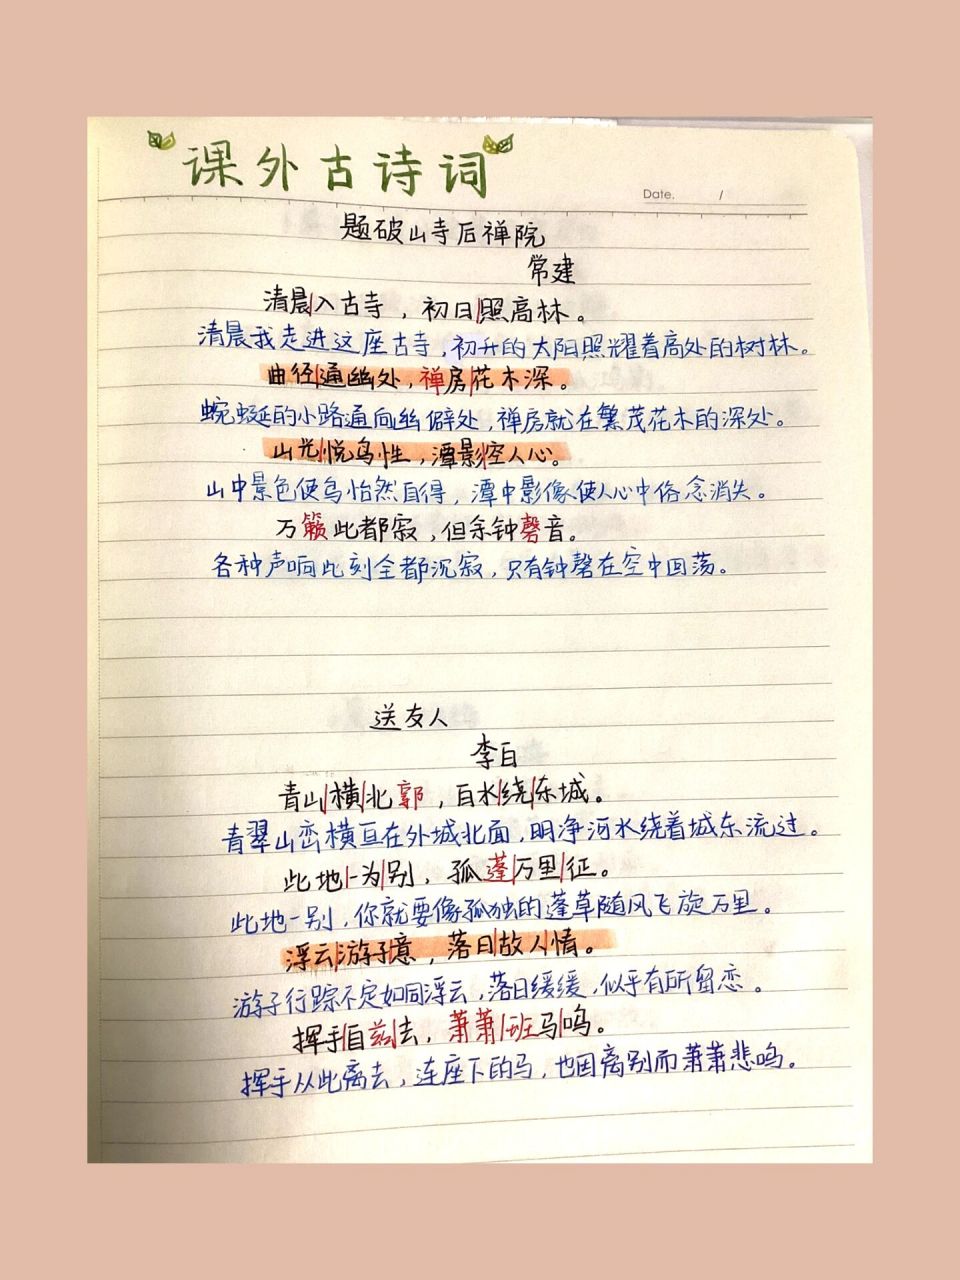 课外古诗词
Date. /
题破山寺后禅院
常建
清晨入古寺，初日照高林。
清晨我走进这座古寺，初升的太阳照耀着高处的树林。
曲径通幽处，禅房花木深。
蜿蜒的小路通向幽僻处，禅房就在繁茂花木的深处。
山光悦鸟性，潭影空人心。
山中景色使鸟怡然自得，潭中影像使人心中俗念消失。
万籁此都寂，但余钟磬音。
各种声响此刻全都沉寂，只有钟磬在空中回荡。
送友人
李白
青山横北郭，白水绕东城。
青翠山峦横亘在外城北面，明净河水绕着城东流过。
此地一为别，孤蓬万里征。
此地一别，你就要像孤独的蓬草随风飞旋万里。
浮云游子意，落日故人情。
游子行踪不定如同浮云，落日缓缓，似乎有所留恋。
挥手自兹去，萧萧班马鸣。
挥手从此离去，连座下的马，也因离别而萧萧悲鸣。